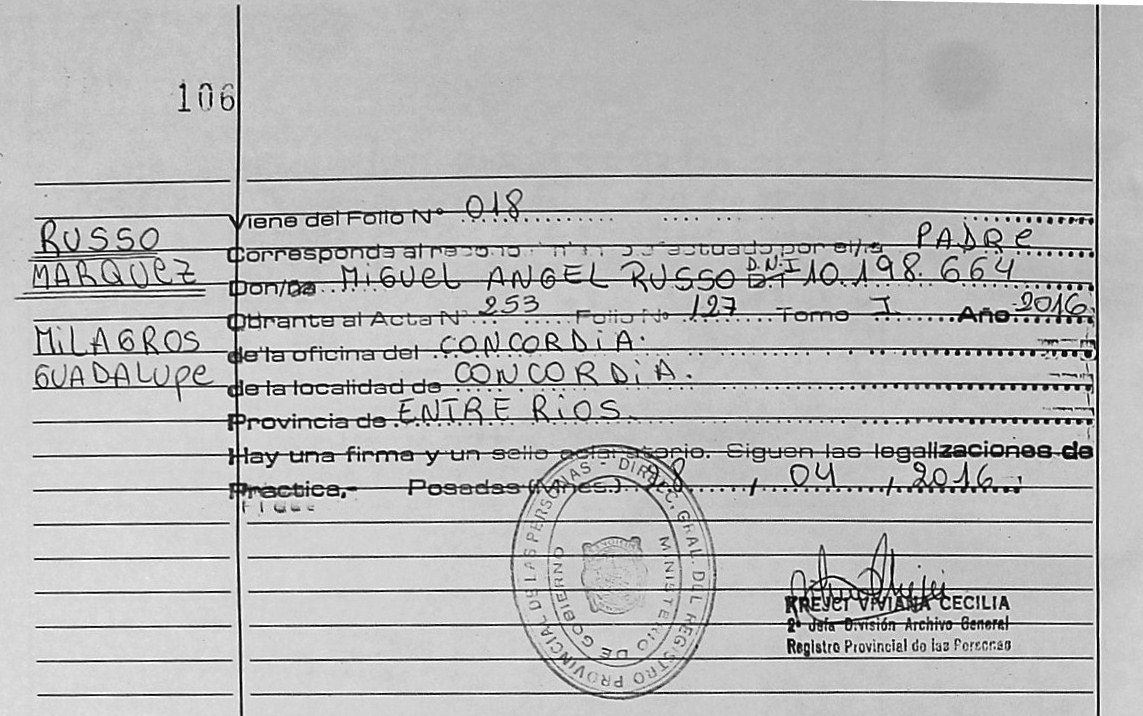 106
RUSSO
MARQUEZ
MiLAGROS
GUADALUPE
Viene del Folio N° 018
Corresponde al reconocimiento efectuado por el/la PADRE
Don/ña MiGUEL ANGEL RUSSO D.N.I 10.198.664
Obrante al Acta N° 253 Folio No 127 Tomo I Año 2016
de la oficina del CONCORDiA.
de la localidad de CONCORDiA.
Provincia de ENTRE RiOS.
Hay una firma y un sello aclaratorio. Siguen las legalizaciones de
Práctica,- Posadas (Mnes.) 28, 04, 2016
DIREC. GRAL. DEL REGISTRO PROVINCIAL DE LAS PERSONAS -
MINISTERIO DE GOBIERNO
KREJCI VIVIANA CECILIA
2° Jefa División Archivo General
Registro Provincial de las Personas